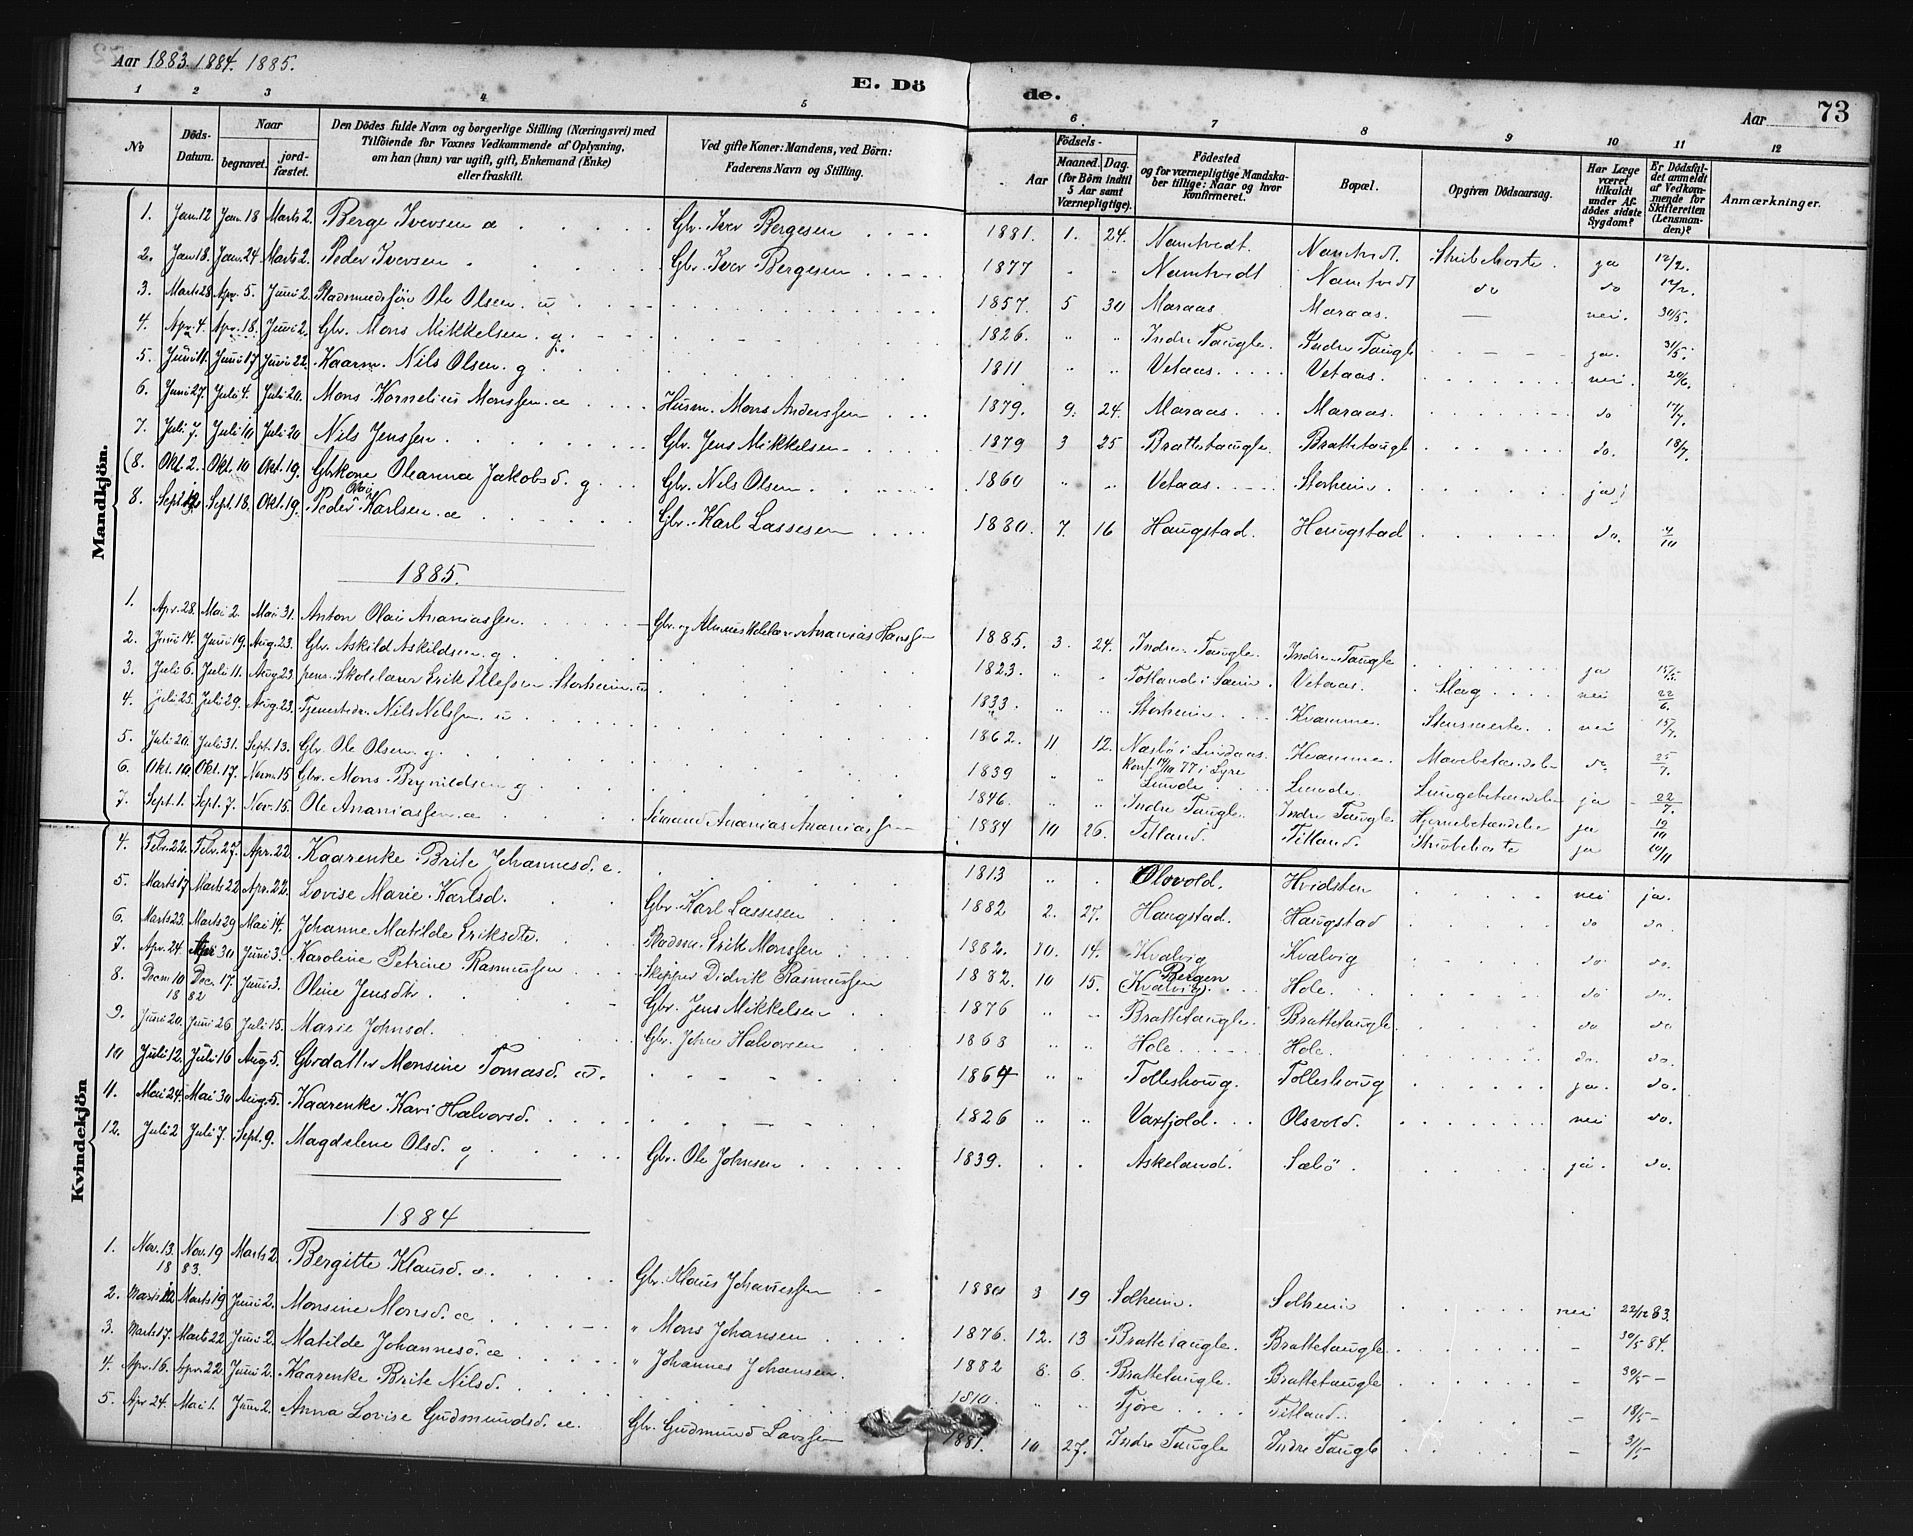 Aar 1883. 1884. 1885.
E. Dö de.
Aar 73
1 2 3 4 5 6 7 8 9 10 11 12
No
Döds-Datum.
Naar
begravet.
jordfæstet.
Den Dödes fulde Navn og borgerlige Stilling (Næringsvei) med
Tilföiende for Voxnes Vedkommende af Oplysning,
om han (hun) var ugift, gift, Enkemand (Enke)
eller fraskilt.
Ved gifte Koner: Mandens, ved Börn:
Faderens Navn og Stilling.
Födsels-
Aar Maaned. Dag.
(for Börn indtil
5 Aar samt
Værnepligtige).
Födested
og for værnepligtige Mandska-
ber tillige: Naar og hvor
konfirmeret.
Bopæl.
Opgiven Dödsaarsag.
Har Læge
været
tilkaldt
under Af-
dödes sidste
Sygdom?
Er Dödsfal-
det anmeldt
af Vedkom-
mende for
Skifteretten
(Lensman-
den)?
Anmærkninger.
Mandkjön.
1. Jan. 12 Jan. 18 Marts 2. Berge Iversen æ Gbr. Iver Bergesen 1881. 1. 24. Namtvedt. Namtvedt. Strubehoste. ja 12/2.
2. Jan 18. Jan. 24 Marts 2. Peder Iversen Gbr. Iver Bergesen 1877 " " Namtvedt Namtvedt do do 12/2.
3. Marts 28 Apr. 5. Juni 2. Ole Olsen. u 1857. 5 30 Maraas. Maraas. — nei. 30/5.
4. Apr. 4. Apr. 18. Juni 2. Gbr. Mons Mikkelsen. g. 1826. " " Indre Taugle. Indre Taugle ja. 31/5.
5. Juni 11. Juni 17 Juni 22. Kaarm. Nils Olsen. g 1811 " " Vetaas. Vetaas. nei. 20/6.
6. Juni 27. Juli 4. Juli 20. Mons Kornelius Monssen. æ Husm. Mons Anderssen 1879. 9. 24. Maraas. Maraas. do 17/7.
7. Juli 7. Juli 10 Juli 20 Nils Jenssen. Gbr. Jens Mikkelsen 1879 3 25 Brattetaugle. Brattetaugle do. 18/7.
(8. Okt. 2. Okt. 10 Okt. 19. Gbrkone Oleanna Jakobsd. g Gbr. Nils Olsen. 1860 " " Vetaas. Storheim. ja)
8. Sept. 12 Sept. 18. Okt. 19. Peder Olai Karlsen. æ Gbr. Karl Lassesen 1880. 7. 16 Haugstad. Haugstad do. 4/10
1885.
1. Apr. 28. Mai 2. Mai 31. Anton Olai Ananiassen. Gbr. og Almueskolelærer Ananias Hanssen 1885. 3. 24. Indre Taugle. Indre Taugle ja 15/5.
2. Juni 14. Juni 19. Aug. 23. Gbr. Askild Askildsen. g 1823. " " Totland i Sæim. Vetaas. Slag nei 22/6
3. Juli 6. Juli 11. Aug 23 pens. Skolelærer Erik Storheim. u 1833. " " Storheim. Kvamme. nei 15/7.
4. Juli 25. Juli 29. Aug. 23. Nils Nilssen. u 1862. 11 12. Næsbö i Lindaas. Konf. 77 i Lyre Kvamme. Mavebetændelse do. 25/7.
5. Juli 20. Juli 31. Sept. 13. Gbr. Ole Olsen. g. 1839 " " Lunde. Lunde. Lungebetændelse ja 22/7.
6. Okt. 10 Okt. 17. Novm. 15 Gbr. Mons Brynildsen g 1846. " " Indre Taugle. Indre Taugle. Hjernebetændelse ja 19/10
7. Sept. 1. Sept. 7. Nov. 15. Ole Ananiassen. æ Ananias Ananiassen 1884 10 26. Titland. Titland. Strubehoste ja 10/11
Kvindekjön
4. Febr. 22. Febr. 27. Apr. 22. Kaarenke Brite Johannesd. e. 1813 " Olsvold. Hvidsten nei ja.
5. Marts 17 Marts 22 Apr. 22. Lovise Marie Karlsd. Gbr. Karl Lassesen 1882 2. 27. Haugstad. Haugstad do do.
6. Marts 23. Marts 29 Mai 14. Johanne Matilde Eriksdtr. Erik Monssen 1882. 10. 14. Kvalvig Kvalvig do do.
7. Apr. 24. Apr 30 Juni 3. Karoline Petrine Rasmussen Skipper Didrik Rasmussen 1882. 10 15. Bergen (Kvalvig). Hole. do do.
8. Decm 10 Dec. 17. Juni 3. Oline Jensdtr. Gbr. Jens Mikkelsen 1876 " " Brattetaugle. Brattetaugle. do do
18 82
9. Juni 20. Juni 26 Juli 15. Marie Johnsd. Gbr. John Halvorsen 1868 " " Hole. Hole. do. do.
10 Juli 12. Juli 16 Aug. 5. Gbrdatter Monsine Tomasd. u. 1864 " " Tolleshoug. Tolleshoug ja. do.
11. Mai 24. Mai 30 Aug. 5. Kaarenke Kari Halvorsd. 1826 " " Olsvold. nei do.
12. Juli 2 Juli 7. Sept. 9. Magdalene Olsd. g Gbr. Ole Johnsen 1839. Askeland. Sæbö ja. do.
1884
1. Nov. 13. Nov. 19 Marts 2. Bergitte Klausd. æ. Gbr. Klaus Johannessen 1880 3 19 Solheim. Solheim nei 22/12 83.
18 83.
2. Marts 12 Marts 19 Juni 2. Monsine Monsd. æ " Mons Johansen 1876. 12. 13 Brattetaugle. Brattetaugle. — 30/5 84.
3. Marts 17. Marts 22 Juni 2. Matilde Johannesd. æ " Johannes Johansen. 1882 8. 6. Brattetaugle. Brattetaugle — 30/5 —
4. Apr. 16. Apr. 22 Juni 2. Kaarenke Brite Nilsd. 1810. " " Fjöre Titland. — 18/5 —
5. Apr 24. Mai 1. Juni 2. Anna Lovise Gudmundsd. æ. Gbr. Gudmund Larssen 1881. 10 27. Indre Taugle Indre Taugle — 31/5